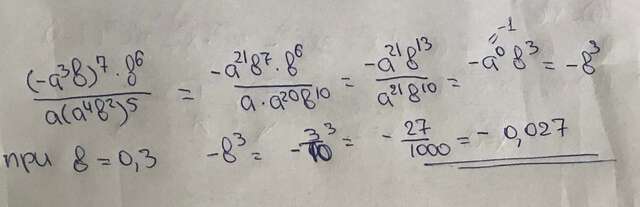 (-a³b)⁷ · b⁶ / a(a⁴b²)⁵ = -a²¹b⁷ · b⁶ / a · a²⁰b¹⁰ = -a²¹b¹³ / a²¹b¹⁰ = -a⁰b³ = -b³
= -1
при b = 0,3 -b³ = - 3³/10 = - 27/1000 = - 0,027